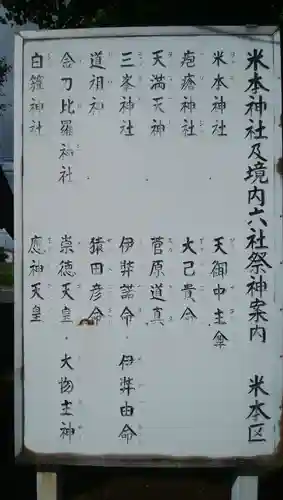 米本神社及境内六社祭神案内 米本区
米本神社 天御中主尊
疱瘡神社 大己貴命
天満天神 菅原道真
三峯神社 伊弉諾命・伊弉冉命
道祖神 猿田彦命
金刀比羅神社 崇徳天皇・大物主神
白籏神社 應神天皇